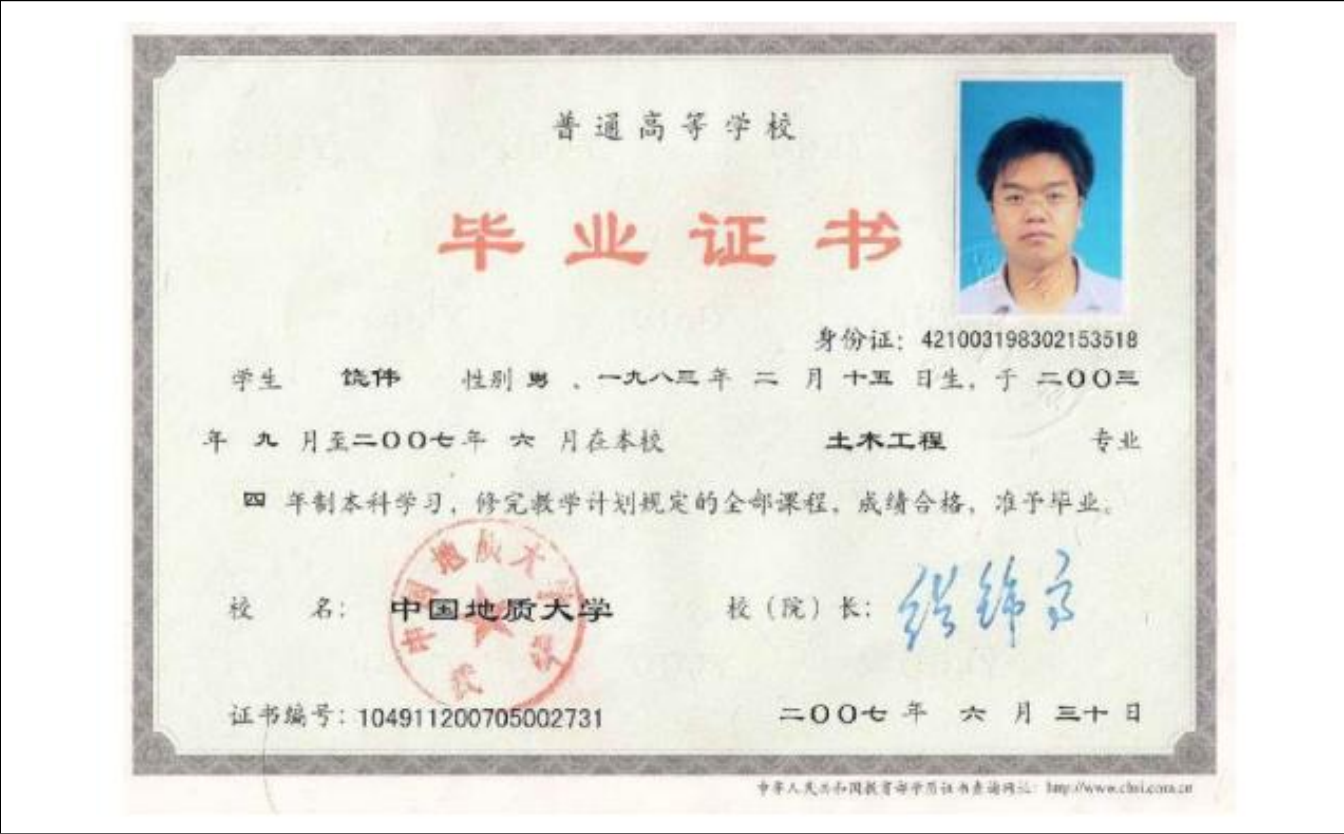 普通高等学校
毕业证书
身份证：421003198302153518
学生 饶伟 性别 男 、一九八三 年 二 月 十五 日生，于 二〇〇三
年 九 月至二〇〇七年 六 月在本校 土木工程 专业
四 年制本科学习，修完教学计划规定的全部课程，成绩合格，准予毕业。
中国地质大学
武汉
校 名： 中国地质大学 校（院）长： 张锦高
证书编号：104911200705002731 二〇〇七 年 六 月 三十 日
中华人民共和国教育部学历证书查询网址：http://www.chsi.com.cn